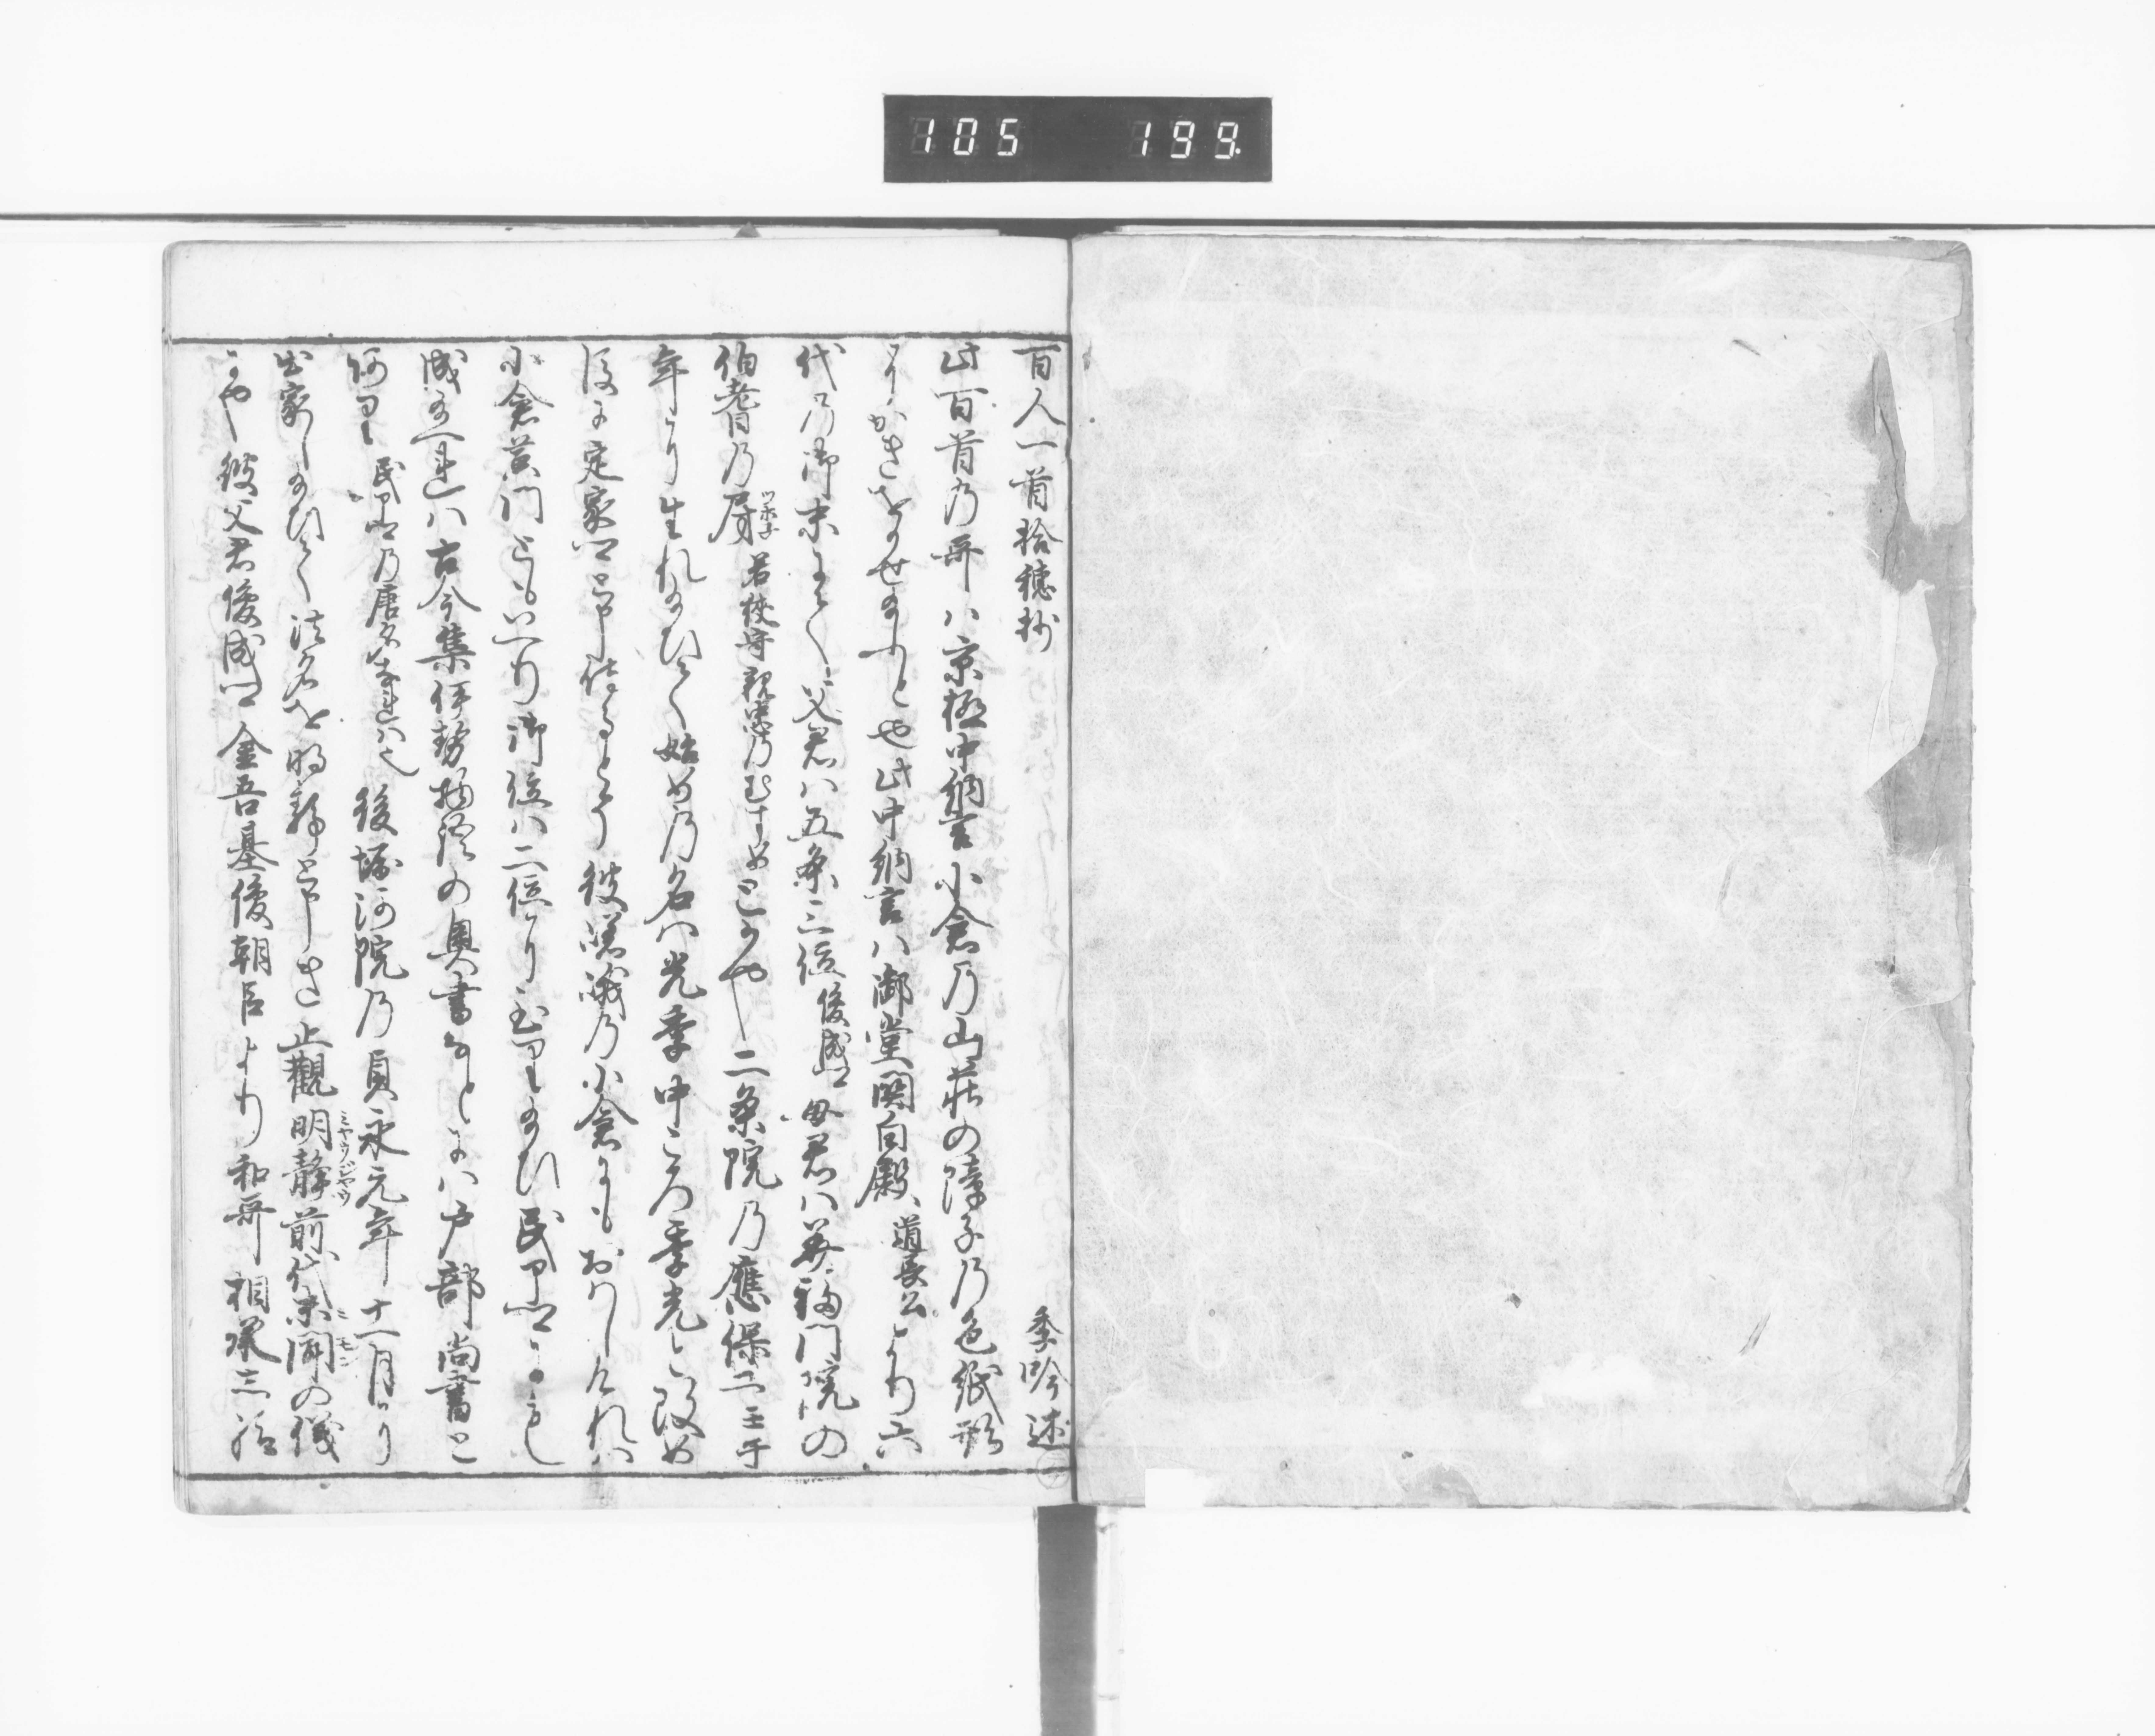 105 199.
百人一首拾穂抄 季吟述
此百首乃哥ハ京極中納言小倉乃山荘の障子乃色紙形
にかきをかせ給ふとや此中納言ハ御堂関白殿道長公より六
代乃御末にて父君ハ五条三位俊成卿母君ハ美福門院の
伯耆乃局ツホネ若狭守親忠乃むすめとかや二条院乃應保二壬午
年に生れ給ひて始めの名ハ光季中ころ季光と改め
後に定家卿と申侍るとそ彼嵯峨乃小倉にもおハしけれハ
小倉黄門ともいへり御位ハ二位に至り給ひ民部卿にも
成給へれハ古今集伊勢物語の奥書なとにハ戸部尚書と
民部卿乃唐名なれハ也後堀河院乃貞永元年十一月に
出家し給ひて法名を明静と申しき止観明静ミヤウジヤウ前代未聞ミモンの儀
とかや彼父君俊成卿金吾基俊朝臣より和哥相承